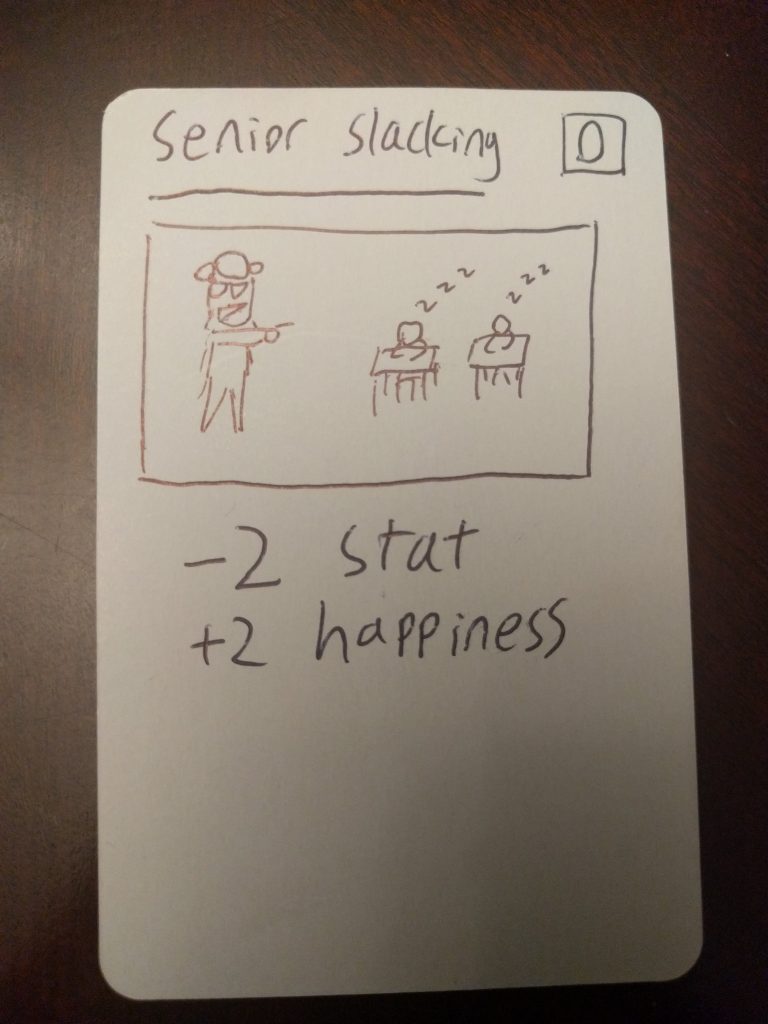 Senior slacking 0
z z z z
z z z z
-2 stat
+2 happiness